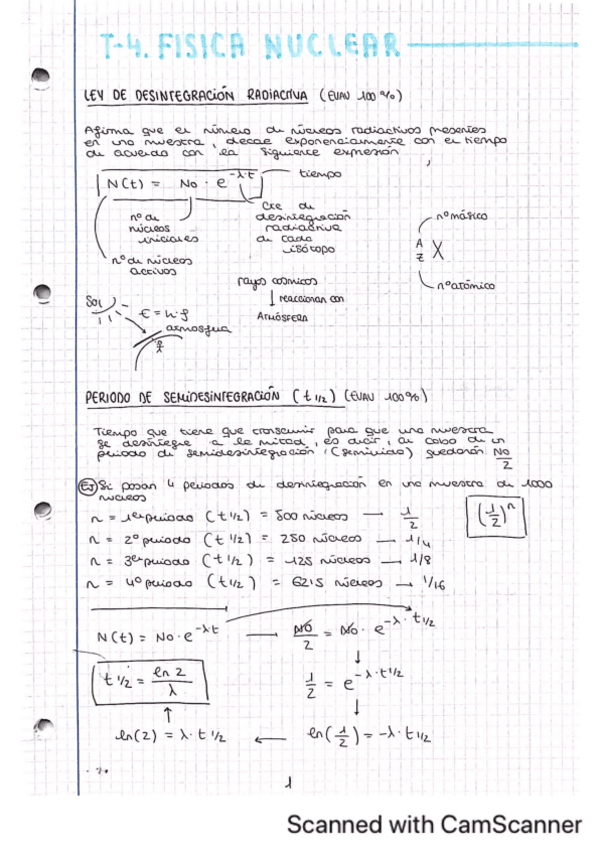 T-4. FISICA NUCLEAR
LEY DE DESINTEGRACIÓN RADIACTIVA (EVAU 100%)
Afirma que el número de núcleos radiactivos presentes
en una muestra, decae exponencialmente con el tiempo
de acuerdo con la siguiente expresión
N(t) = No · e^-λ·t
tiempo
nº de
núcleos
iniciales
nº de núcleos
activos
Cte de
desintegración
radiactiva
de cada
isótopo
nº másico
A
Z X
nº atómico
rayos cósmicos
↓ reaccionan con
ATMÓSFERA
Sol
E = h·f
atmosfera
PERIODO DE SEMIDESINTEGRACIÓN (t 1/2) (EVAU 100%)
Tiempo que tiene que transcurrir para que una muestra
se desintegre a la mitad, es decir, al cabo de un
periodo de semidesintegración (semivida) quedarán No/2
Ej Si pasan 4 periodos de desintegración en una muestra de 1000
núcleos
n = 1er periodo (t 1/2) = 500 núcleos → 1/2
(1/2)^n
n = 2º periodo (t 1/2) = 250 núcleos → 1/4
n = 3er periodo (t 1/2) = 125 núcleos → 1/8
n = 4º periodo (t 1/2) = 62'5 núcleos → 1/16
N(t) = No·e^-λt → No/2 = No · e^-λ·t1/2
t 1/2 = ln 2/λ
1/2 = e^-λ·t1/2
ln(2) = λ·t 1/2 ← ln(1/2) = -λ·t 1/2
1
Scanned with CamScanner